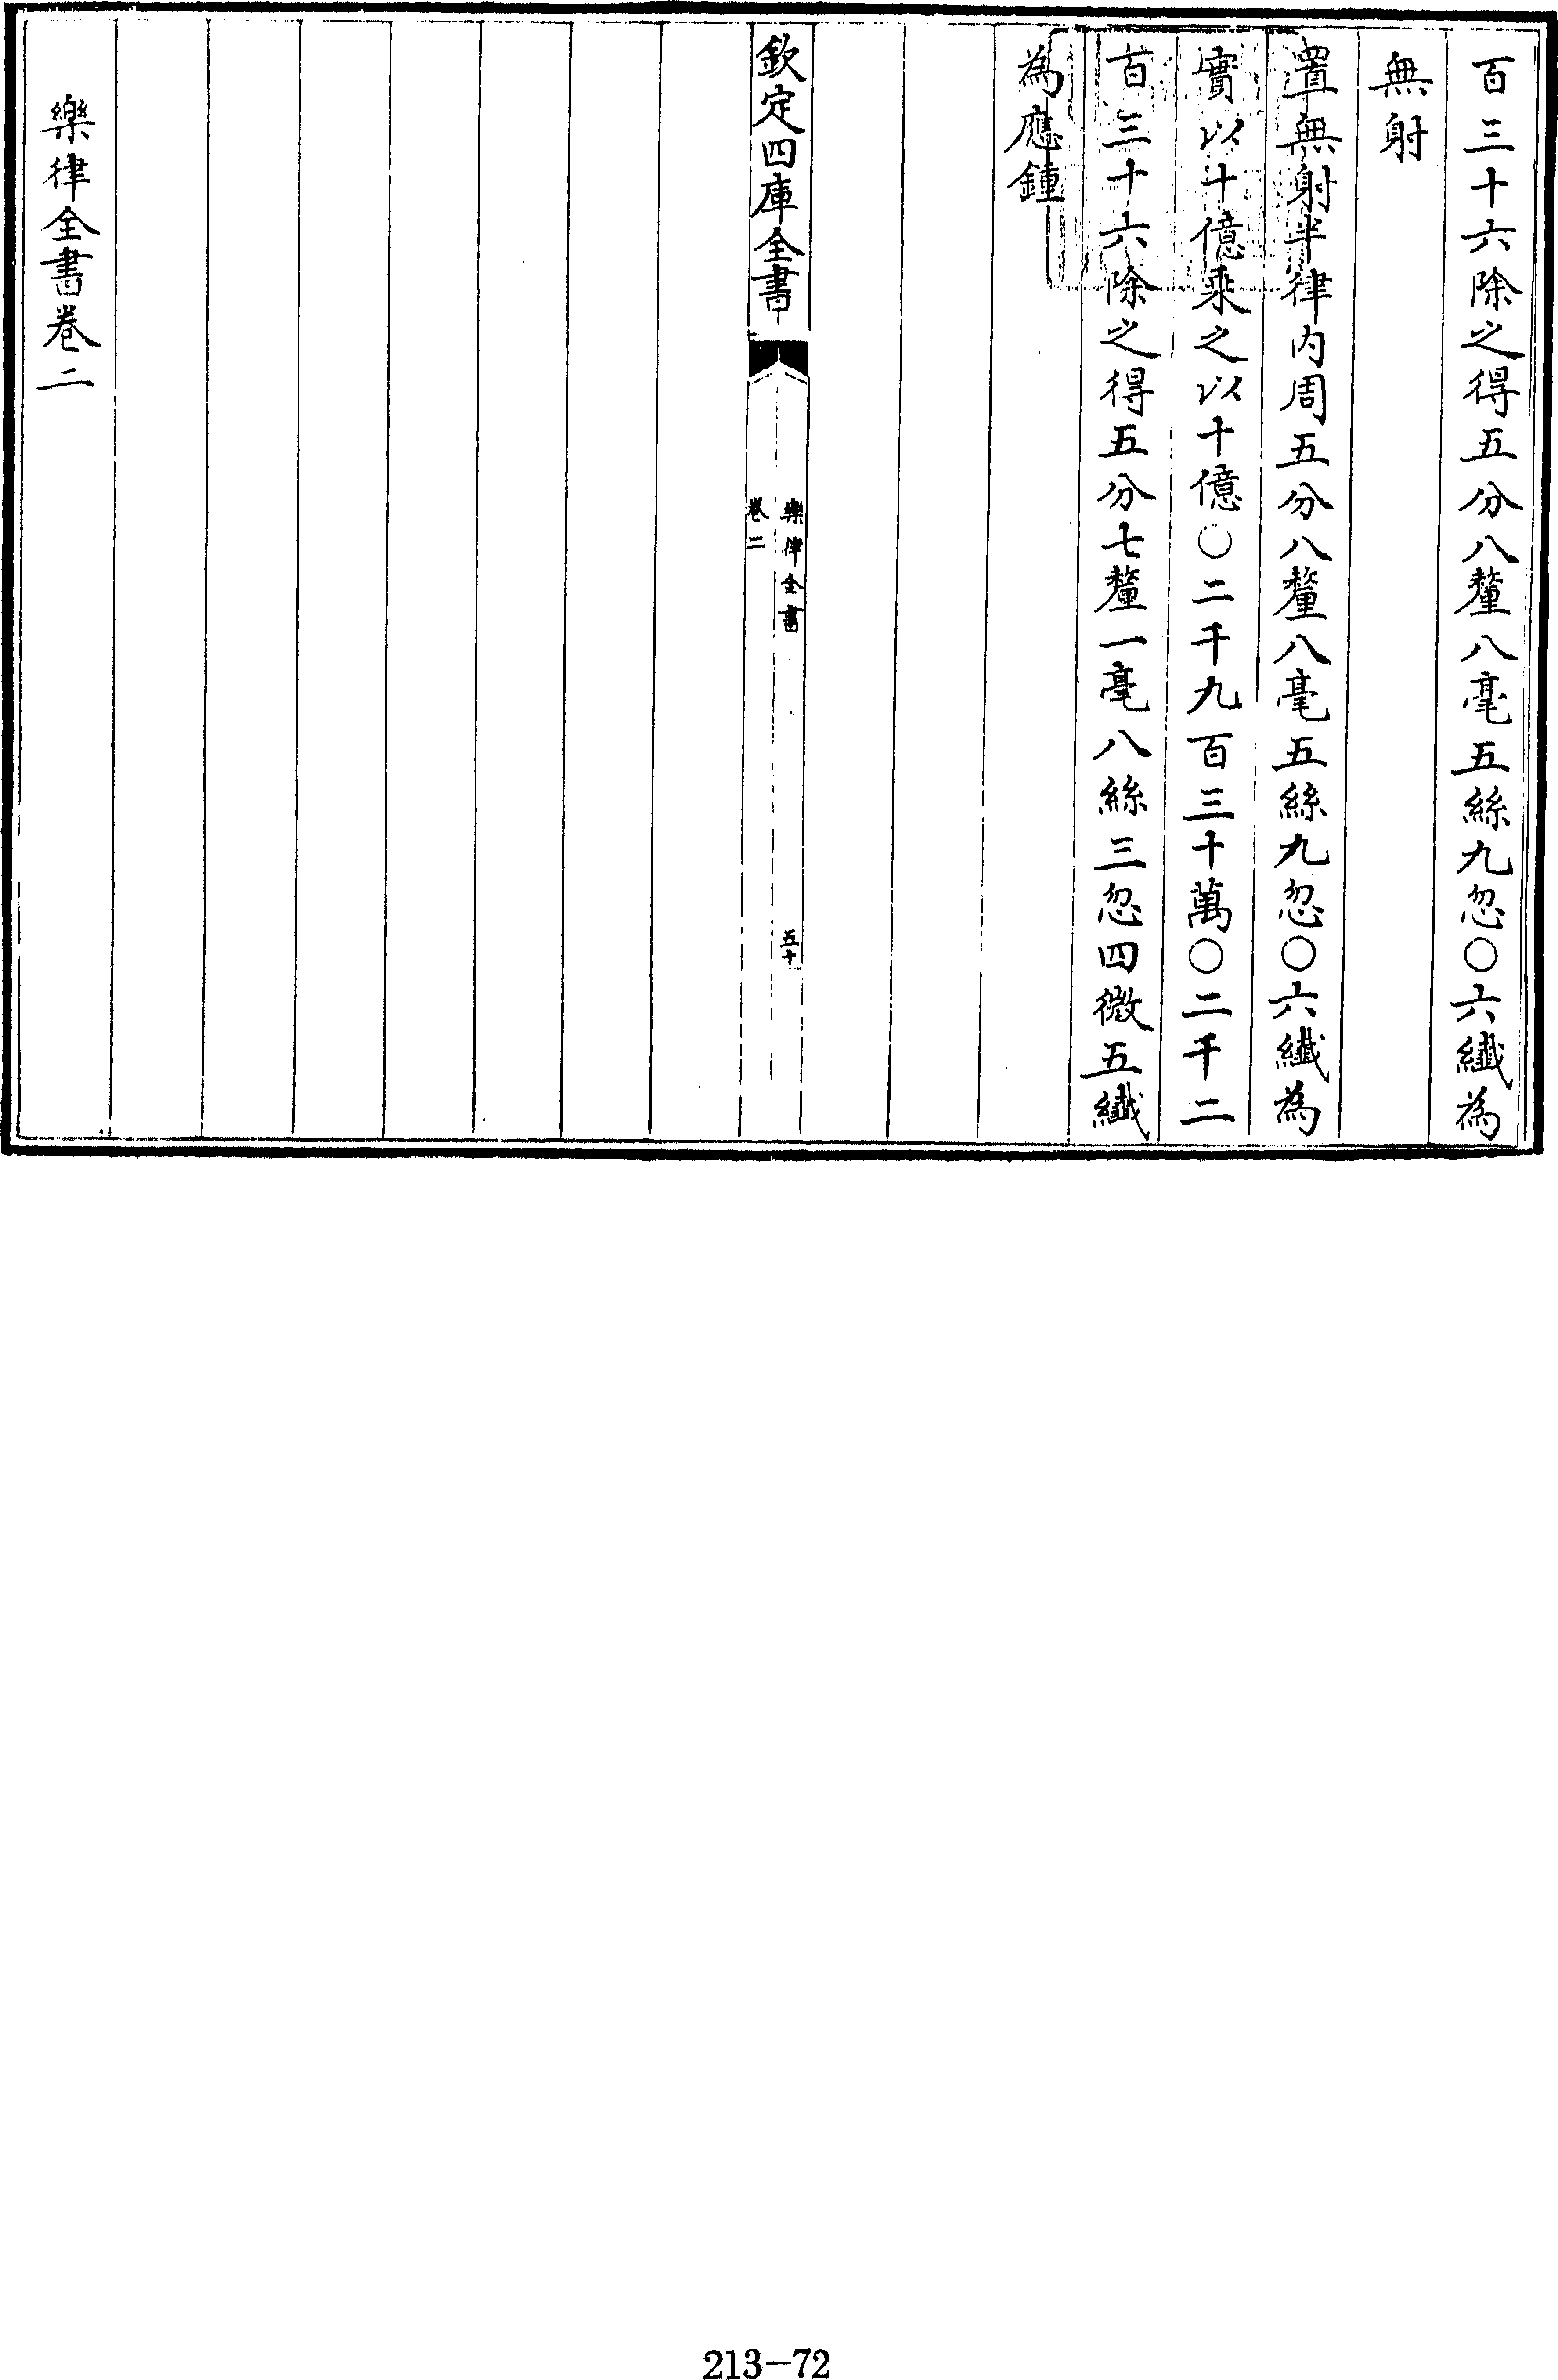 百三十六除之得五分八釐八毫五絲九忽○六纖為
無射
置無射半律内周五分八釐八毫五絲九忽○六纖為
實以十億乘之以十億○二千九百三十萬○二千二
百三十六除之得五分七釐一毫八絲三忽四微五纖
為應鍾
欽定四庫全書
樂律全書
卷二
五十
樂律全書卷二
213-72